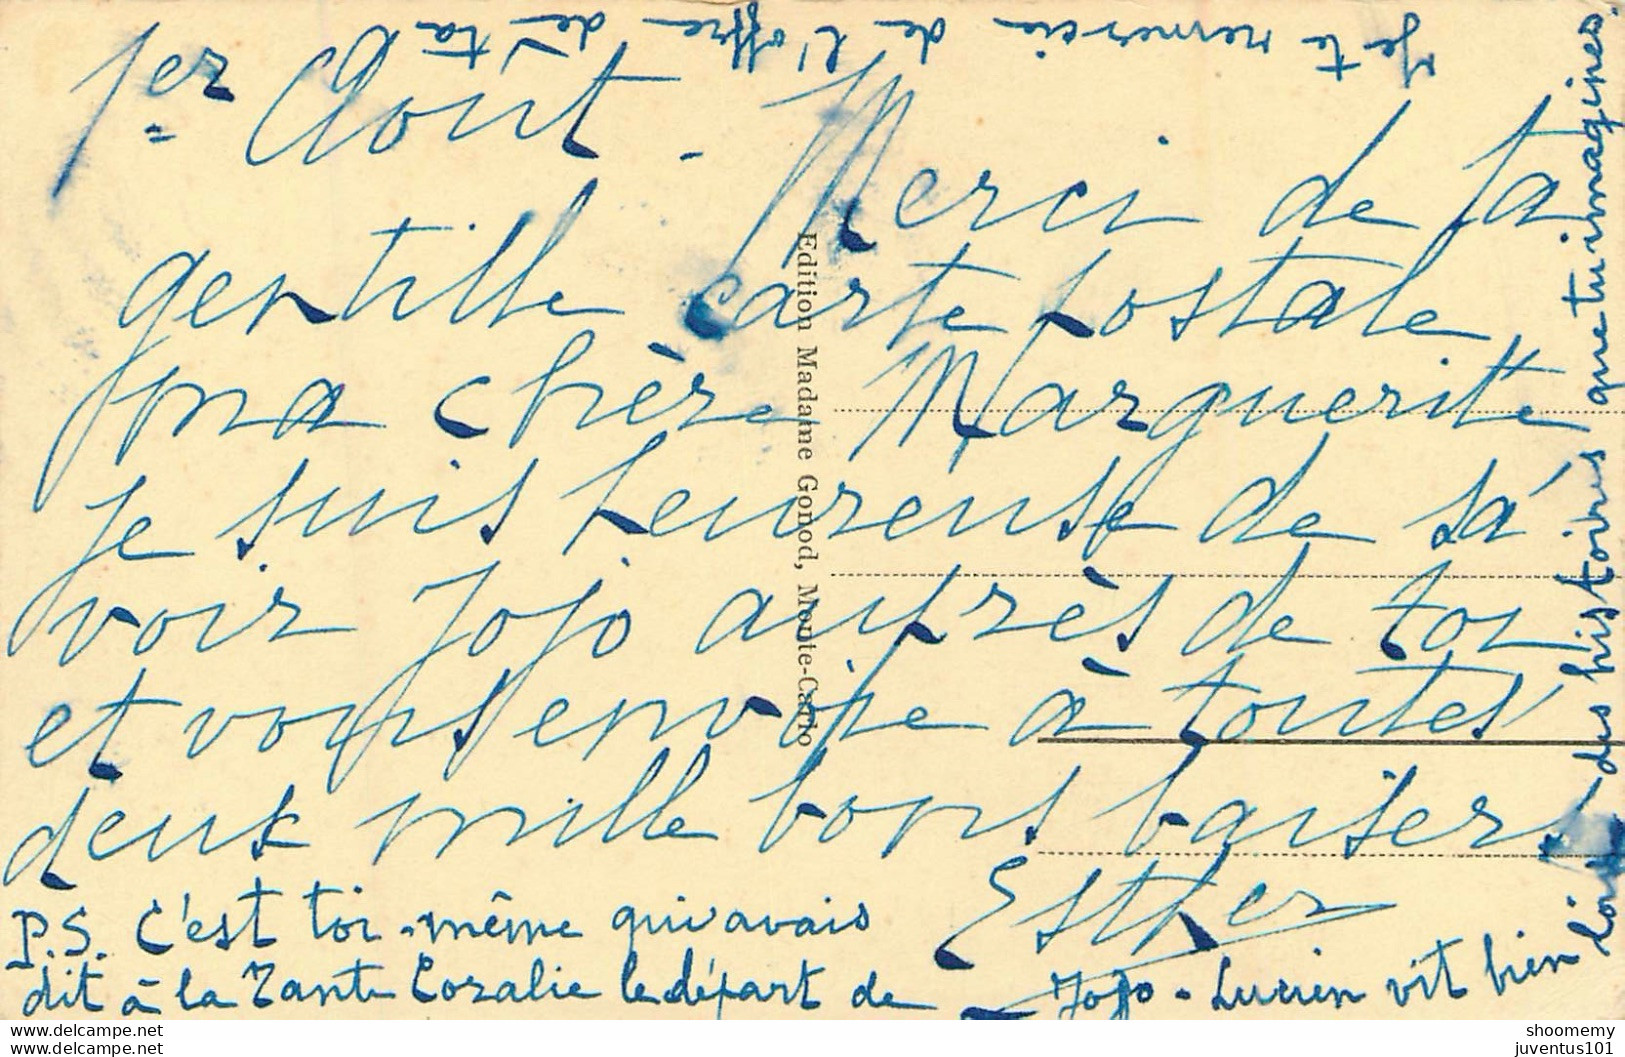 1er Août - Merci de ta
gentille carte postale
ma chère Marguerite
je suis heureuse de sa
voir Jojo auprès de toi
et vous envoie à toutes
deux mille bons baisers
Esther
P.S. C'est toi-même qui avais
dit à la Tante Coralie le départ de Jojo - Lucien vit bien loin
des histoires que tu imagines.
Je te remercie de l'offre de ta
Edition Madame Gonod, Monte-Carlo
delcampe.net
delcampe.net
shoomemy
juventus101